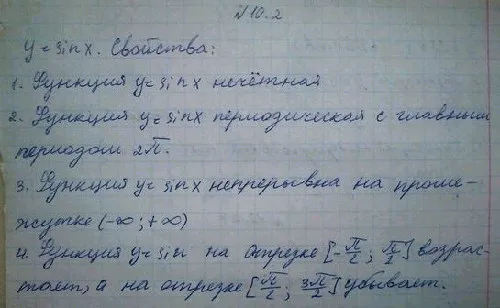 №10.2
y = sin x. Свойства:
1. Функция y = sin x нечётная
2. Функция y = sin x периодическая с главным
периодом 2π.
3. Функция y = sin x непрерывна на проме-
жутке (-∞; +∞)
4. Функция y = sin на отрезке [-π/2; π/2] возрас-
тает, а на отрезке [π/2; 3π/2] убывает.